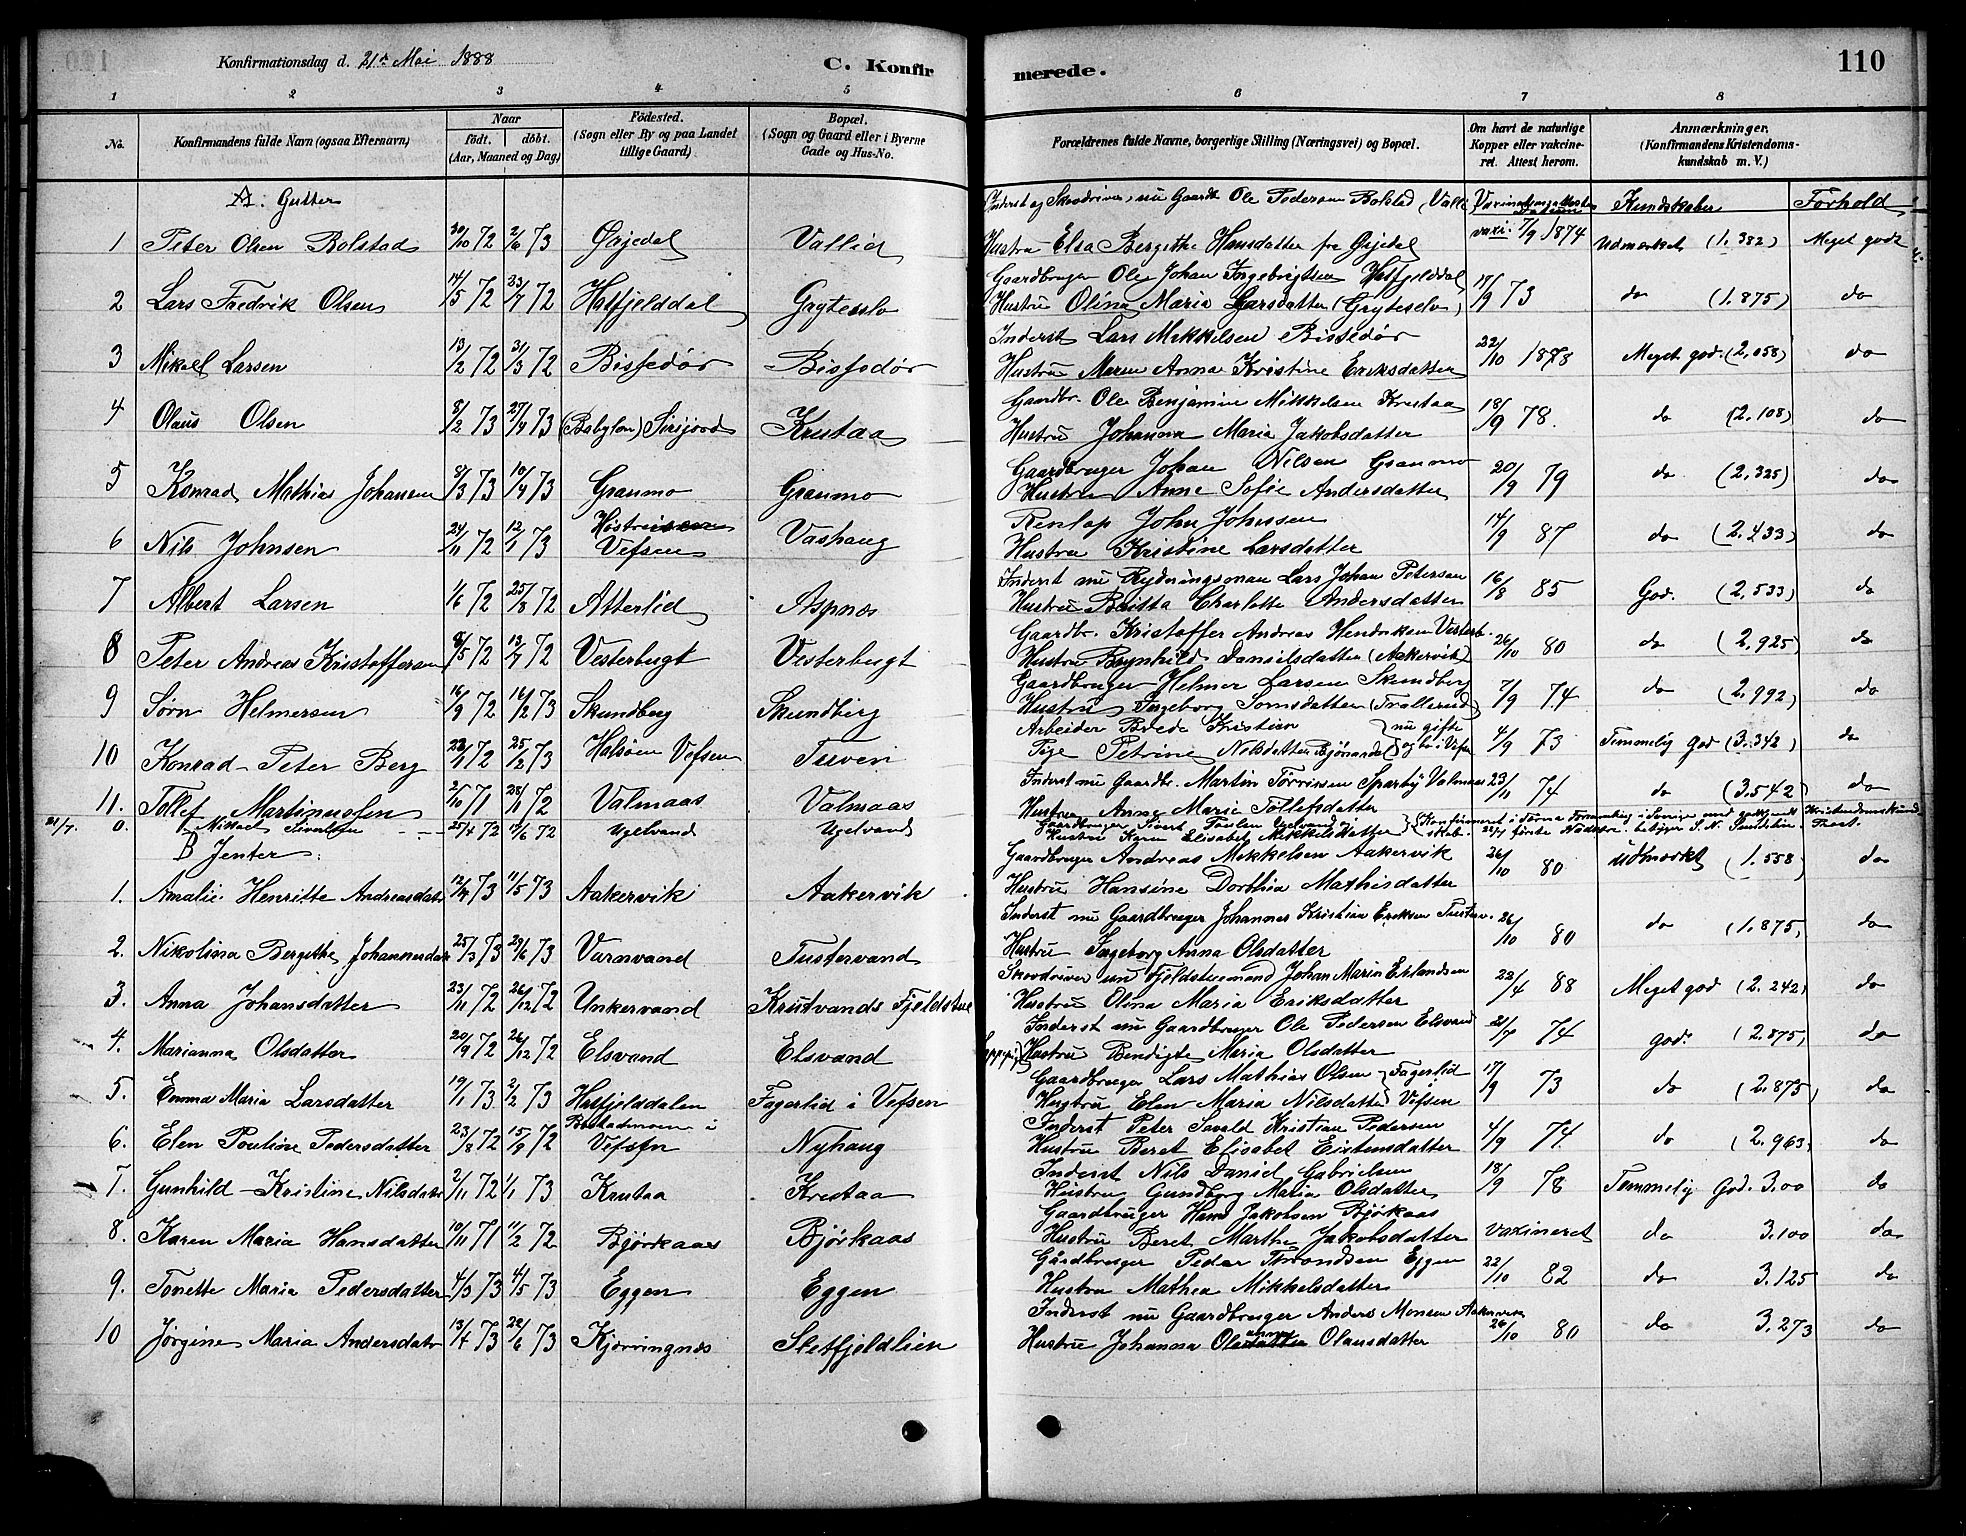 Konfirmationsdag d. 21de Mai 1888
C. Konfirmerede.
110
1 2 3 4 5 6 7 8
No.
Konfirmandens fulde Navn (ogsaa Efternavn)
Naar
födt. döbt.
(Aar, Maaned og Dag)
Födested.
(Sogn eller By og paa Landet tillige Gaard)
Bopæl.
(Sogn og Gaard eller i Byerne Gade og Hus-No.
Forældrenes fulde Navne, borgerlige Stilling (Næringsvei) og Bopæl.
Om havt de naturlige Kopper eller vakcineret. Attest herom.
Anmærkninger.
(Konfirmandens Kristendomskundskab m. V.)
A. Gutter
Kundskaber Forhold
Inderst og Skovdriver, nu Gaardb. Ole Pedersen Bolstad
1 Peter Olsen Bolstad 2/6 73 Vallid
Hustru Elsa Bergithe Hansdatter fra vaxi. 7/9 1874 Udmærket (1.382) Meget godt
Gaardbruger Ole Johan Ingebrigtsen
2 Lars Fredrik Olsen 14/5 72 23/7 72 Hatfjelddal Gryteselv
Hustru Olina Maria Larsdatter (Gryteselv) 17/9 73 do (1.875) do
Inderst Lars Mikkelsen Bissedør
3 Mikael Larsen 13/2 72 31/3 72 Bissedør Bissedør
Hustru Maren Anna Kristine Eriksdatter 22/10 1878 Meget god. (2.058) do
Gaardbr. Ole Benjamin Mikkelsen Krutaa
4 Olaus Olsen 8/2 73 27/4 73 (Babylon) Krutaa
Hustru Johanna Maria Jakobsdatter 18/9 78. do (2.108) do
Gaardbruger Johan Nilsen Granmo
5 Konrad Mathias Johansen 8/3 73 10/4 73 Granmo Granmo
Hustru Anne Sofie Andersdatter 20/9 79 do (2.325) do
Renlap John Johnsen
6 Nils Johnsen 24/11 72 12/1 73 Vefsen Vashaug
Hustru Kristine Larsdatter 14/9 87 do (2.433) do
Inderst nu Rydningsman Lars Johan Petersen
7 Albert Larsen 1/6 72 25/8 72 Atterlid Aspnæs
Hustru Britta Charlotte Andersdatter 16/8 85 God. (2.533) do
Gaardbr. Kristoffer Andreas Hendriksen Vesterb.
8 Peter Andreas Kristoffersen 8/5 72 13/7 72 Vesterbugt Vesterbugt
Hustru Brynhild Danielsdatter (Aakervik) 26/10 80 do (2.925) do
Gaardbruger Helmer Larsen Skundberg
9 Sørn Helmersen 16/9 72 16/2 73 Skundberg Skundberg
Hustru Ingeborg 7/9 74 do (2.992) do
Arbeider Brede Kristian } nu gifte
10 Konrad Peter Berg 25/2 73 Halsøen Vefsen Tuven
Pige Petrine Nilsdatter og bo i Vefsn 4/9 73 Temmelig god (3.342) do
Inderst nu Gaardbr. Martin
11. Tollef Martinussen 2/10 71 28/1 72 Valmaas Valmaas
Hustru Anne Marie Tollefsdatter 23/11 74 do (3.542) do
21/7. 0. Mikael Sivertsen 25/4 72 72 Ugelvand Ugelvand
Hustru Karen Elisabet Mikkelsdatter
B Jenter:
Gaardbruger Andreas Mikkelsen Aakervik
1. Amalie Henritte Andreasdatr 12/4 73 11/5 73 Aakervik Aakervik
Hustru Hansine Dorthia Mathisdatter 26/10 80 Udmærket (1.558) do
Inderst nu Gaardbruger Johannes Kristian Eriksen Tusterv.
2. Nikolina Bergitte Johannesdatr 25/3 73 29/6 73 Varnvand Tustervand
Hustru Ingeborg Anna Olsdatter 26/10 80 do (1.875) do
Skovdriver nu Fjeldstuemand Johan Maria Erlandsen
3. Anna Johansdatter 23/11 72 26/12 72 Unkervand Krutvands Fjeldstue
Hustru Olina Maria Eriksdatter 23/4 88 Meget god (2.242) do
Inderst nu Gaardbruger Ole Pedersen Elsvand
4. Marianna Olsdatter 20/9 72 26/12 72 Elsvand Elsvand
Hustru Bendigte Maria Olsdatter 21/7 74 god. (2.875) do
Gaardbruger Lars Mathias Olsen } Fagerlid
5. Emma Maria Larsdatter 19/1 73 2/2 73 Hatfjelddalen Fagerlid i Vefsen
Hustru Elen Maria Nilsdatter } Vefsen 17/9 73 do (2.875) do
Inderst Peter Sevald Kristian Pedersen
6. Elen Pouline Pedersdatter 23/8 72 15/9 72 Vefsen Nyhaug
Hustru Beret Elisabet Eistensdatter 4/9 74. do (2.963) do
Inderst Nils Daniel Gabrielsen
7. Gunhild Kristine Nilsdatr 2/11 72 1/1 73 Krutaa Krutaa
Hustru Gundborg Maria Olsdatter 18/9 78 Temmelig God. 3.00 do
Gaardbruger Hans Jakobsen Bjørkaas
8. Karen Maria Hansdatter 10/11 71 11/2 72 Bjørkaas Bjørkaas
Hustru Beret Martha Jakobsdatter vaxineret do 3.100 do
Gårdbruger Peder Throndsen Eggen
9. Tonette Maria Pedersdatter 4/3 73 4/5 73 Eggen Eggen
Hustru Mathea Mikkelsdatter 22/10 82 do 3.125 do
Inderst nu Gaardbruger Anders Monsen Aakervik
10 Jørgine Maria Andersdatr 13/4 73 22/6 73 Kjerringnæs Sletfjeldlien
Hustru Johanna Olausdatter 26/10 80 do 3.273 do